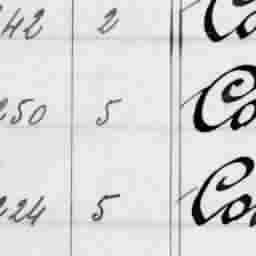 242 2 Co
250 5 Co
224 5 Co